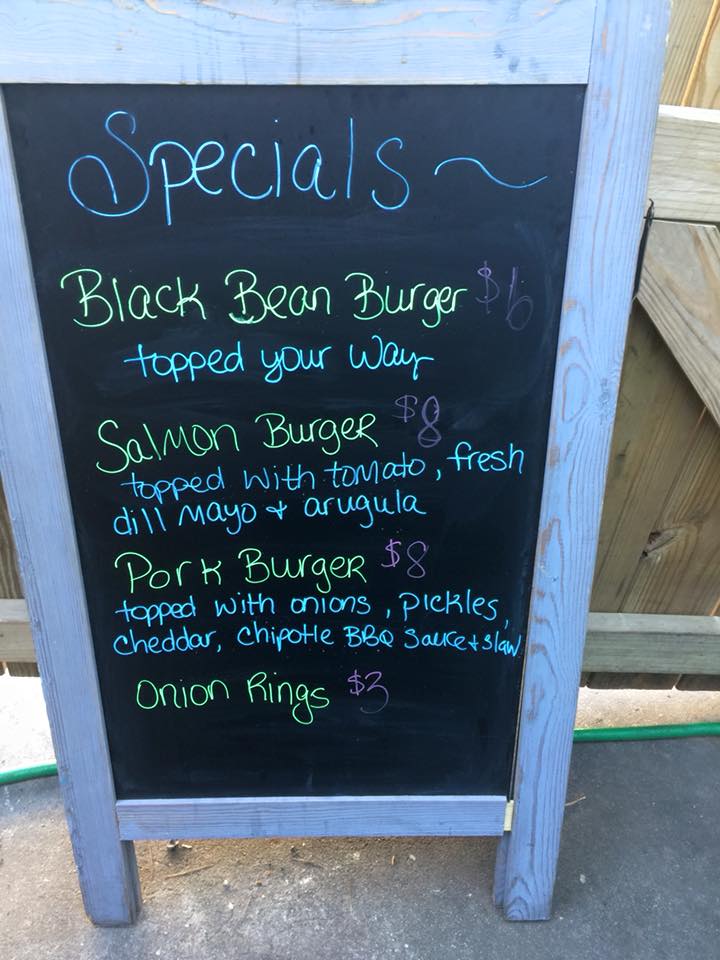 Specials ~
Black Bean Burger $6
topped your way
Salmon Burger $8
topped with tomato, fresh
dill mayo + arugula
Pork Burger $8
topped with onions, pickles,
cheddar, chipotle BBQ sauce + slaw
Onion Rings $3